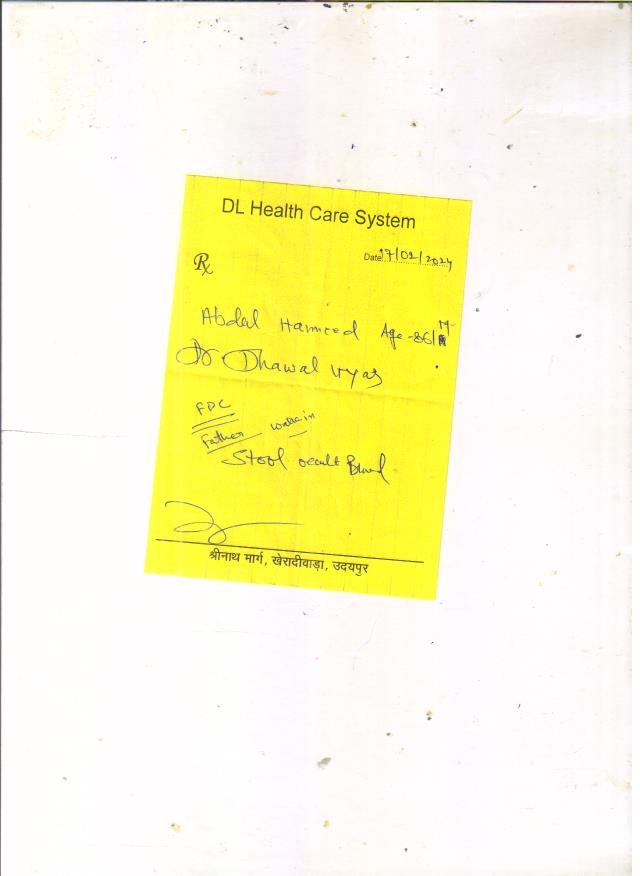 DL Health Care System
Date 17/02/2024
Rx
Abdal Hameed Age-86/M
Dr Dhawal Vyas
FDC
Father walk in
Stool occult Blood
श्रीनाथ मार्ग, खेरादीवाड़ा, उदयपुर